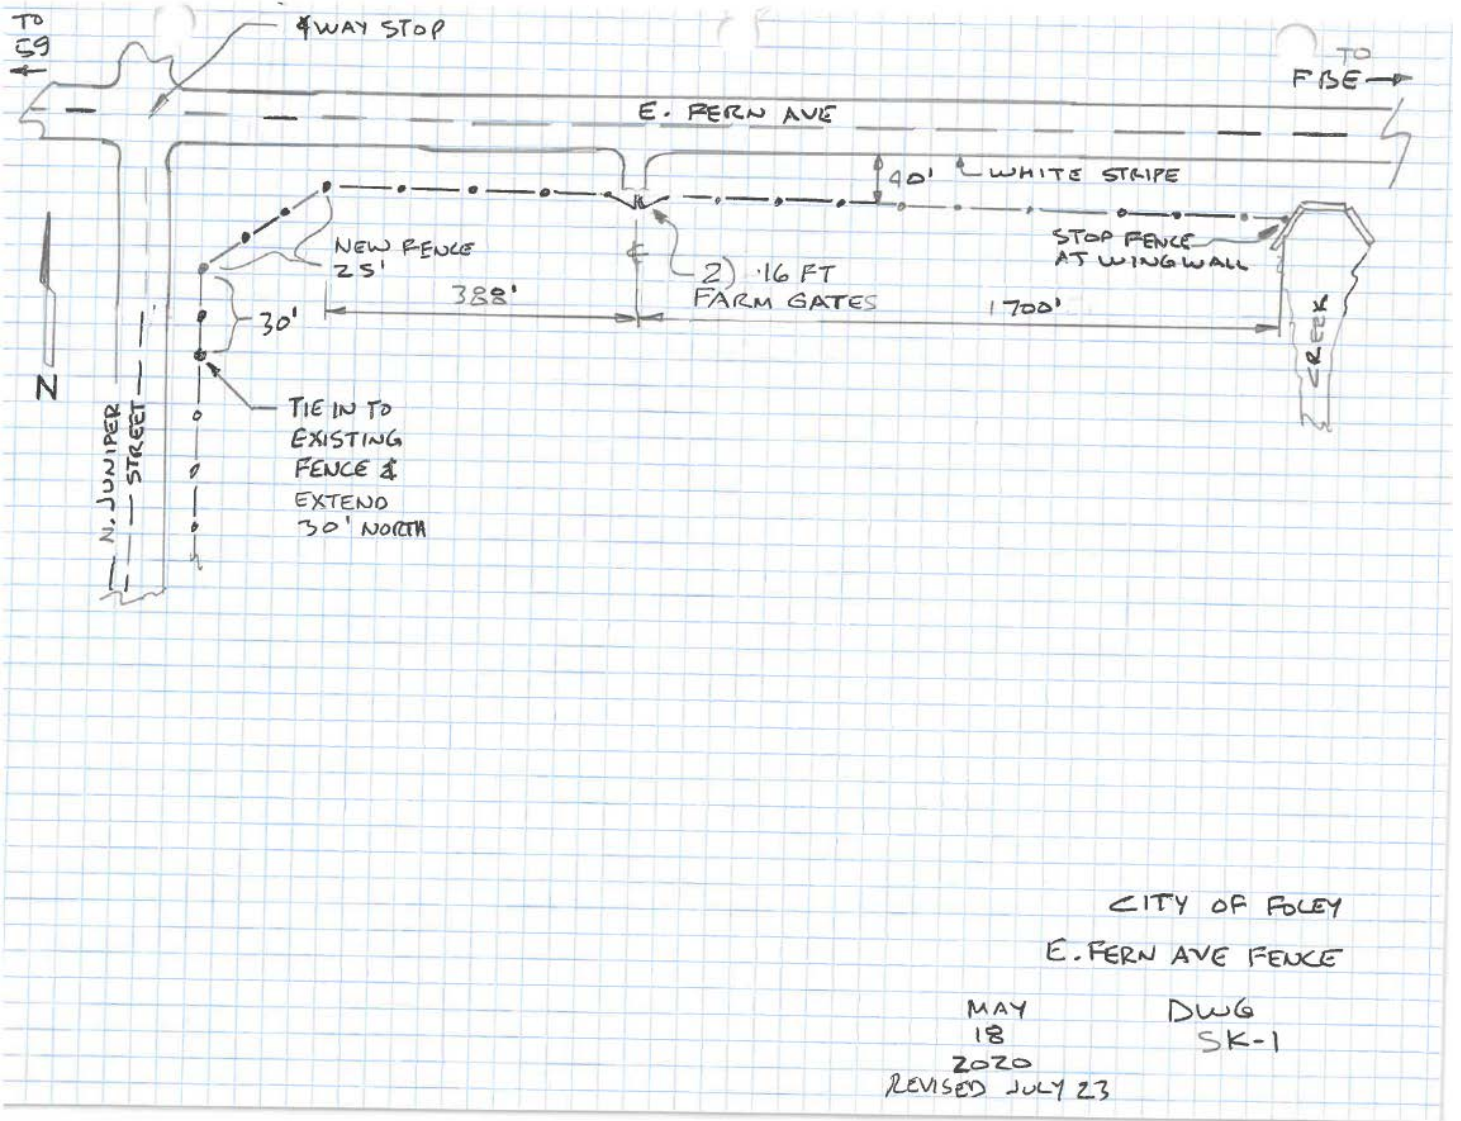 TO
59
4 WAY STOP
TO
FBE
E. FERN AVE
40'
WHITE STRIPE
NEW FENCE
25'
STOP FENCE
AT WINGWALL
2) 16 FT
FARM GATES
388'
1700'
30'
CREEK
N
N. JUNIPER
STREET
TIE IN TO
EXISTING
FENCE &
EXTEND
30' NORTH
CITY OF FOLEY
E. FERN AVE FENCE
MAY
18
2020
REVISED JULY 23
DWG
SK-1